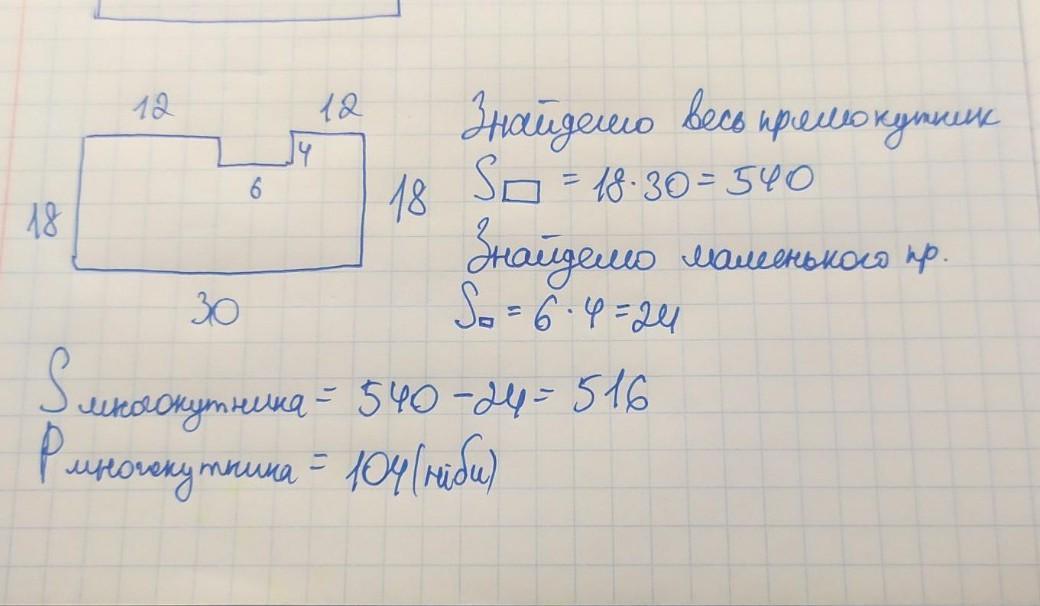 12 12
4
6
18 18
30
Знайдемо весь прямокутник
S▭ = 18·30 = 540
Знайдемо маленького пр.
S▫ = 6·4 = 24
Sмногокутника = 540 – 24 = 516
Pмногокутника = 104 (ніби)